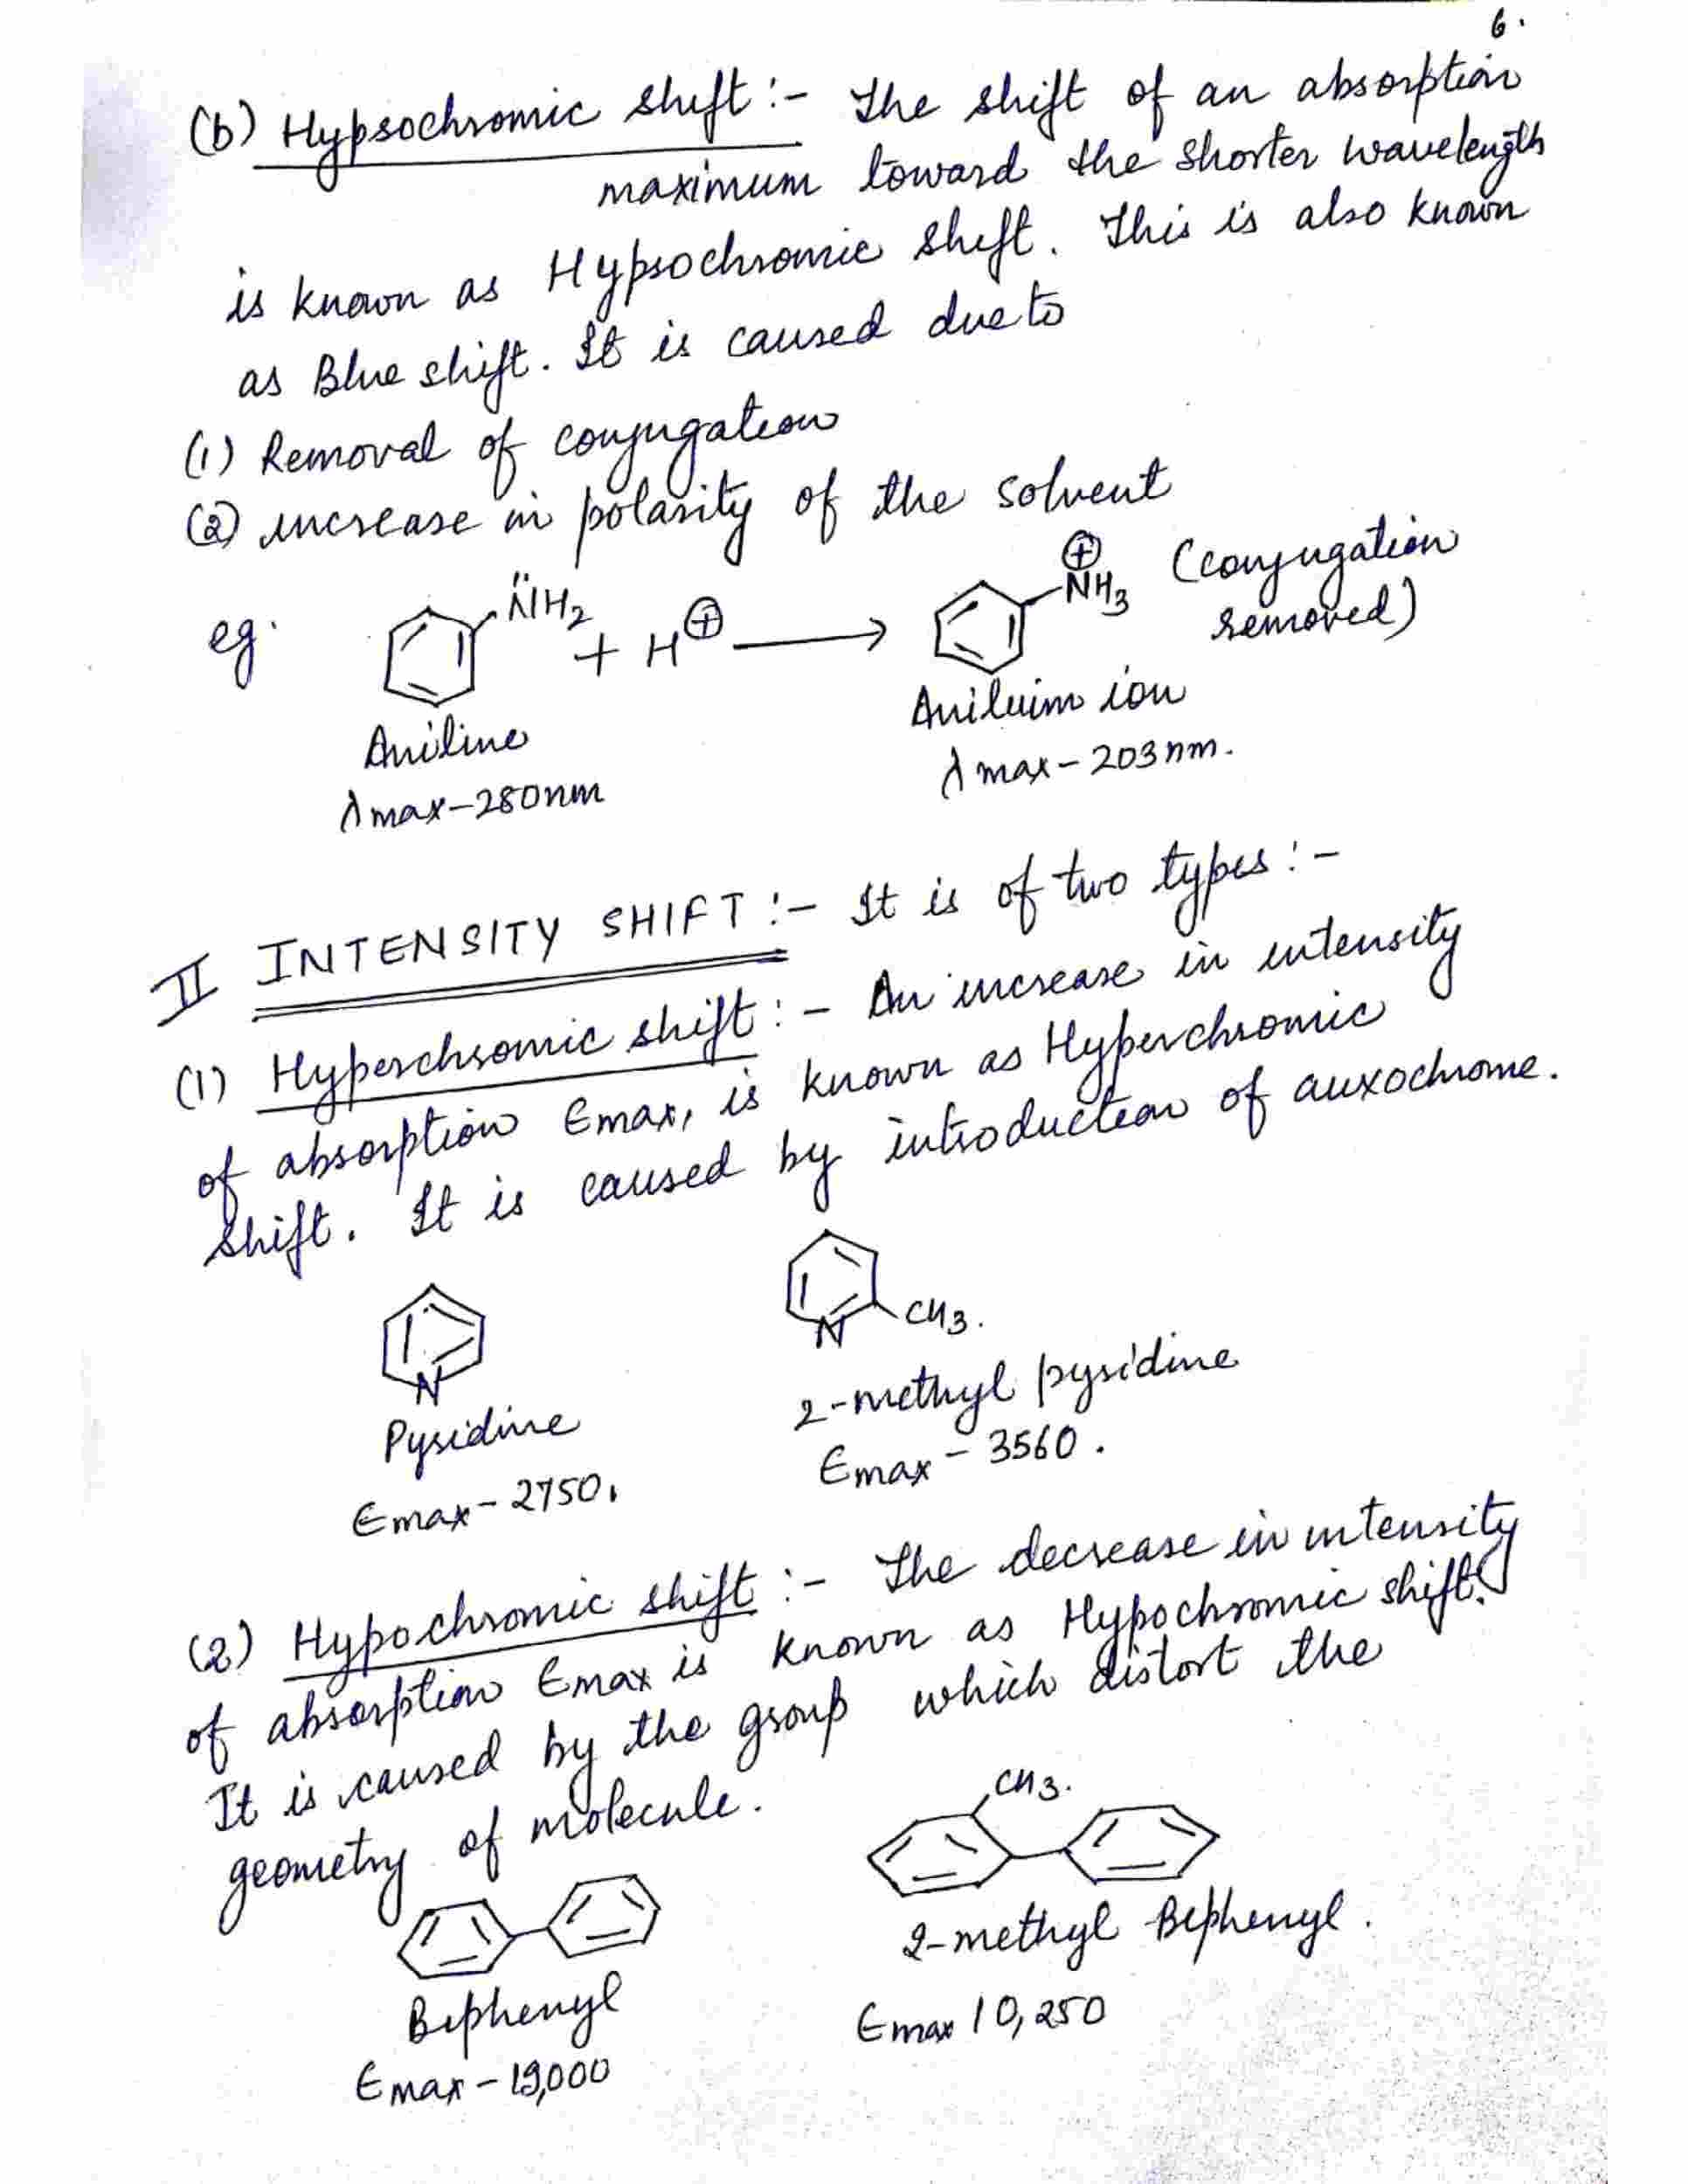 6.
(b) Hypsochromic shift :- The shift of an absorption
maximum toward the shorter wavelength
is known as Hypsochromic shift. This is also known
as Blue shift. It is caused due to
(1) Removal of conjugation
(2) increase in polarity of the solvent
eg. N̈H2 + H⊕ ⟶ ⊕NH3 (conjugation
removed)
Aniline Aniluim ion
λmax-280nm λmax-203nm.
II INTENSITY SHIFT :- It is of two types :-
(1) Hyperchromic shift :- An increase in intensity
of absorption Emax, is known as Hyperchromic
shift. It is caused by introduction of auxochrome.
N N CH3.
Pyridine 2-methyl pyridine
Emax-2750. Emax-3560.
(2) Hypochromic shift :- The decrease in intensity
of absorption Emax is known as Hypochromic shift.
It is caused by the group which distort the
geometry of molecule.
CH3.
Biphenyl 2-methyl Biphenyl.
Emax-19,000 Emax 10,250